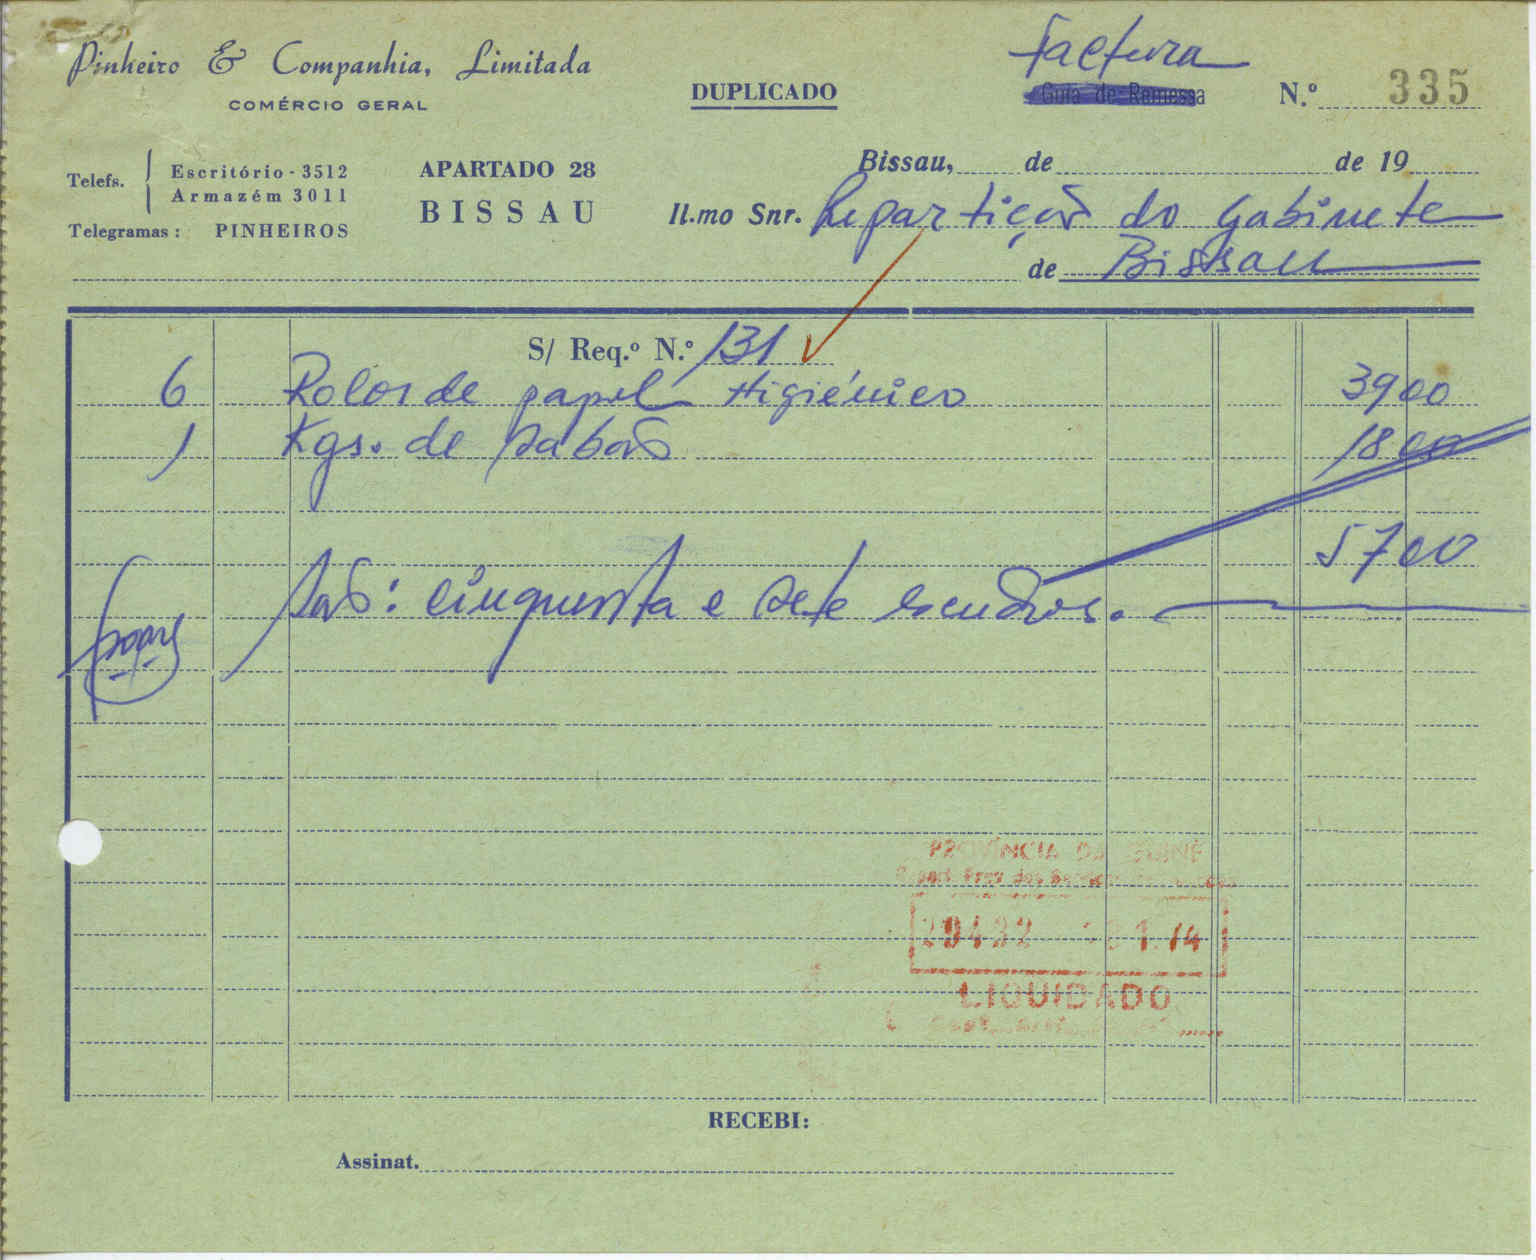 Pinheiro & Companhia, Limitada
COMÉRCIO GERAL
DUPLICADO
Factura
Guia de Remessa N.º 335
Telefs. Escritório - 3512
Armazém 3011
Telegramas: PINHEIROS
APARTADO 28
BISSAU
Bissau, de de 19
Il.mo Snr. Repartição do Gabinete
de Bissau
S/ Req.º N.º 131
6 Rolos de papel Higiénico 3900
1 Kgs. de sabão 1800
5700
São: cinquenta e sete escudos.
PROVÍNCIA DA GUINÉ
LIQUIDADO
RECEBI:
Assinat.